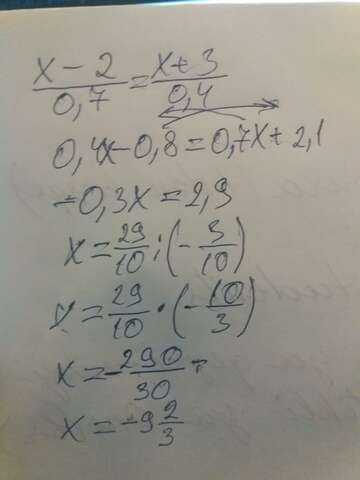 x-2/0,7 = x+3/0,4
0,4x-0,8=0,7x+2,1
-0,3x=2,9
x=29/10:(-3/10)
x=29/10·(-10/3)
x=-290/30
x=-9 2/3